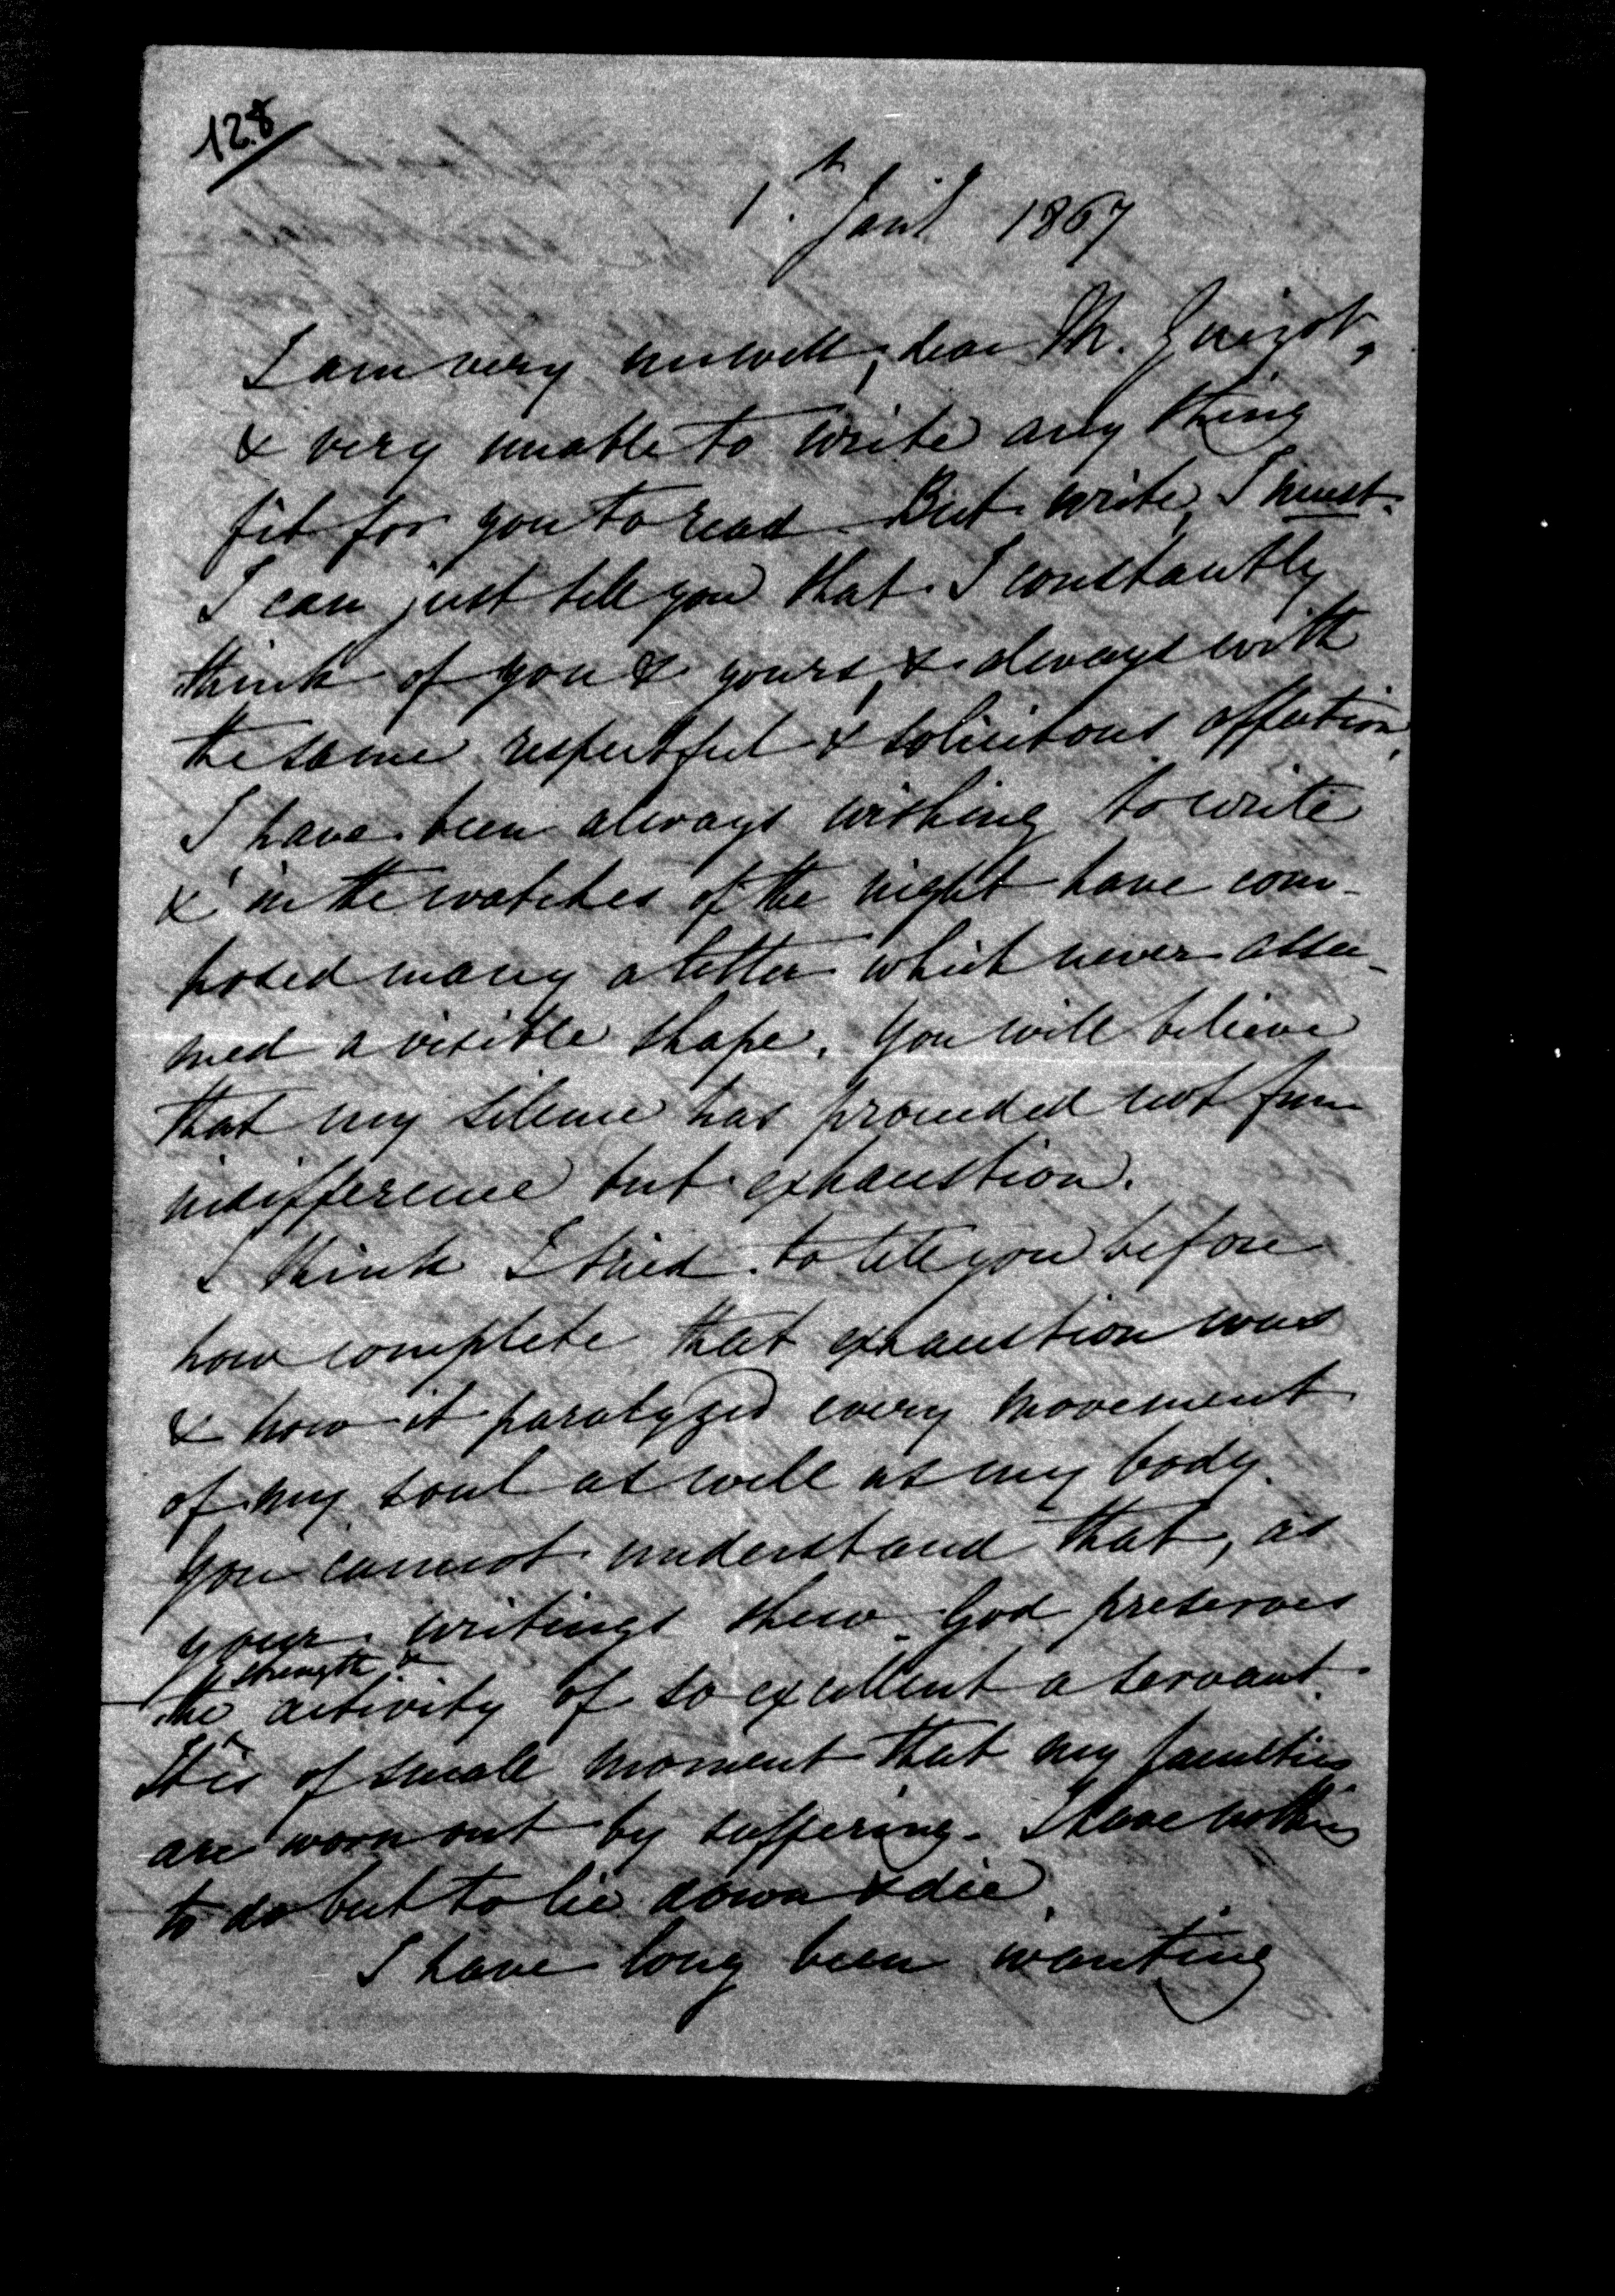 128
1r. Janr. 1867
I am very unwell, dear M. Guizot,
& very unable to write any thing
fit for you to read. But write, I must.
I can just tell you that I constantly
think of you & yours, & always with
the same respectful & solicitous affection,
I have been always wishing to write
& in the watches of the night have com-
posed many a letter which never assu-
med a visible shape. You will believe
that my silence has proceeded not from
indifference but exhaustion.
I think I tried to tell you before
how complete that exhaustion was
& how it paralyzed every movement
of my soul as well as my body.
You cannot understand that, as
your writings shew. God preserves
strength &
the activity of so excellent a servant.
It is of small moment that my faculties
are worn out by suffering. I have nothing
to do but to lie down & die.
I have long been wanting